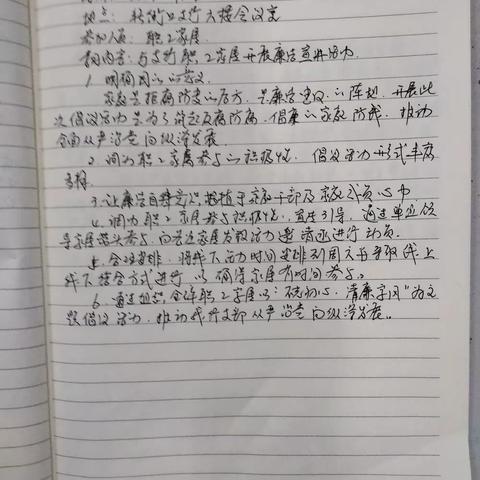 地点：转街口支行六楼会议室
参加人员：职工家属
会议内容：与支行职工家属开展廉洁宣讲活动
1.明确目的的意义
家庭是拒腐防变的后方，是廉洁建设的阵地，开展此
次倡议活动是为了营造反腐防腐，倡廉的家庭防线，推动
全面从严治党向纵深发展。
2.同为职工家属参与的积极性，倡议活动形式丰富
多样
3.让廉洁自律意识根植于家庭干部及家庭成员心中
4.调动职工家属参与积极性，宣传引导，通过单位领
导家属带头参与，向其他家属发放活动邀请函进行动员。
5.合理安排，将线下活动时间安排到周六日争取线上
线下结合方式进行，以确保家属有时间参与。
6.通过组织全体职工家属以"不忘初心，清廉家风"为主
题倡议活动，推动我行支部从严治党向纵深发展。